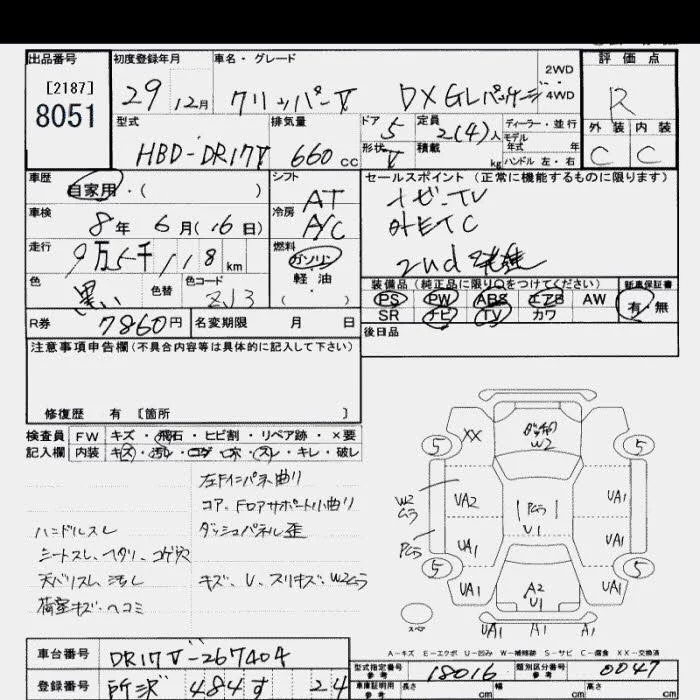 出品番号
[2187]
8051
初度登録年月
29 12月
車名・グレード
クリッパーV DX GLパッケージ
2WD
4WD
評価点
R
外装 内装
C C
型式
HBD-DR17V
排気量
660cc
ドア
5
形状
V
定員
2(4)人
積載
kg
ディーラー・並行
モデル年式 年
ハンドル 左・右
車歴
自家用・( )
シフト
AT
セールスポイント (正常に機能するものに限ります)
ナビ・TV
外ETC
2nd
車検
8年 6月(16日)
冷房
A/C
走行
9万5千118km
燃料
ガソリン
軽油
( )
色
黒い
色替
色コード
ZJ3
装備品(純正品に限り○をつけてください)
PS PW ABS エアB AW
SR ナビ TV カワ
新車保証書
有・無
R券
7860円
名変期限 月 日
後日品
注意事項申告欄(不具合内容等は具体的に記入して下さい)
修復歴 有 [箇所 ]
検査員 FW キズ・飛石・ヒビ割・リペア跡・×要
記入欄 内装 キズ・汚レ・コゲ・穴・スレ・キレ・破レ
左Fインパネ曲り
コア、Fロアサポート小曲り
ハンドルスレ
ダッシュパネル歪
シートスレ、ヘタリ、コゲ穴
天バリスレ、汚レ
キズ、U、スリキズ、W2ムラ
荷室キズ・ヘコミ
XX
W2
5
5
W2
ムラ
UA2
PCムラ
U1
UA1
PCムラ
UA1
UA1
5
5
UA1
A2
U1
UA1
スペア
UA1 A1 A1
A-キズ E-エクボ U-凹み W-補修跡 S-サビ C-腐食 XX-交換済
車台番号
DR17V-267404
型式指定番号
参考
18016
類別区分番号
参考
0047
登録番号
所沢 484 す 24
車庫証明用
参考
長さ cm 幅 cm 高さ cm